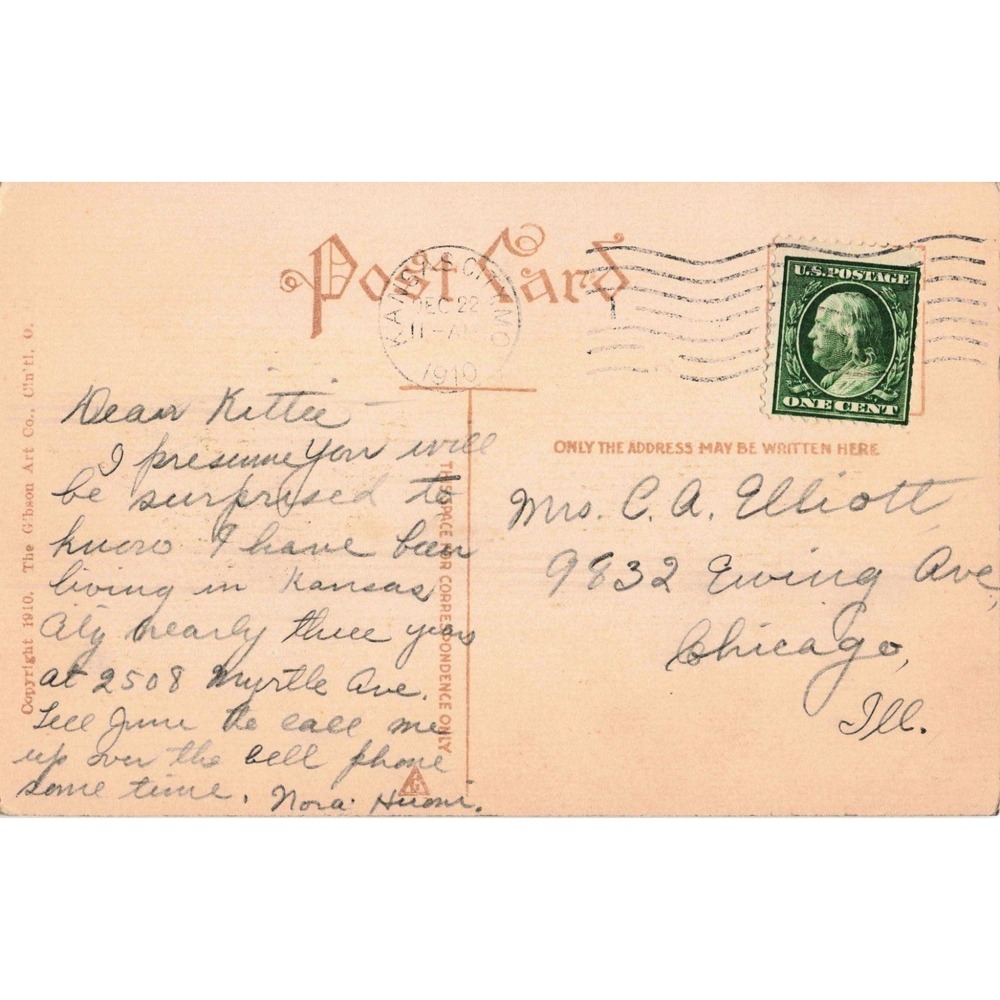 Post Card
KANSAS CITY, MO
DEC 22
11-AM
1910
U.S. POSTAGE
ONE CENT
Copyright 1910, The Gibson Art Co., Cin'ti, O.
THIS SPACE FOR CORRESPONDENCE ONLY
ONLY THE ADDRESS MAY BE WRITTEN HERE
Dear Kittie -
I presume you will
be surprised to
know I have been
living in Kansas
City nearly three years
at 2508 Myrtle Ave.
Tell June to call me
up over the bell phone
some time. Nora
Mrs. C. A. Elliott
9832 Ewing Ave,
Chicago,
Ill.
G